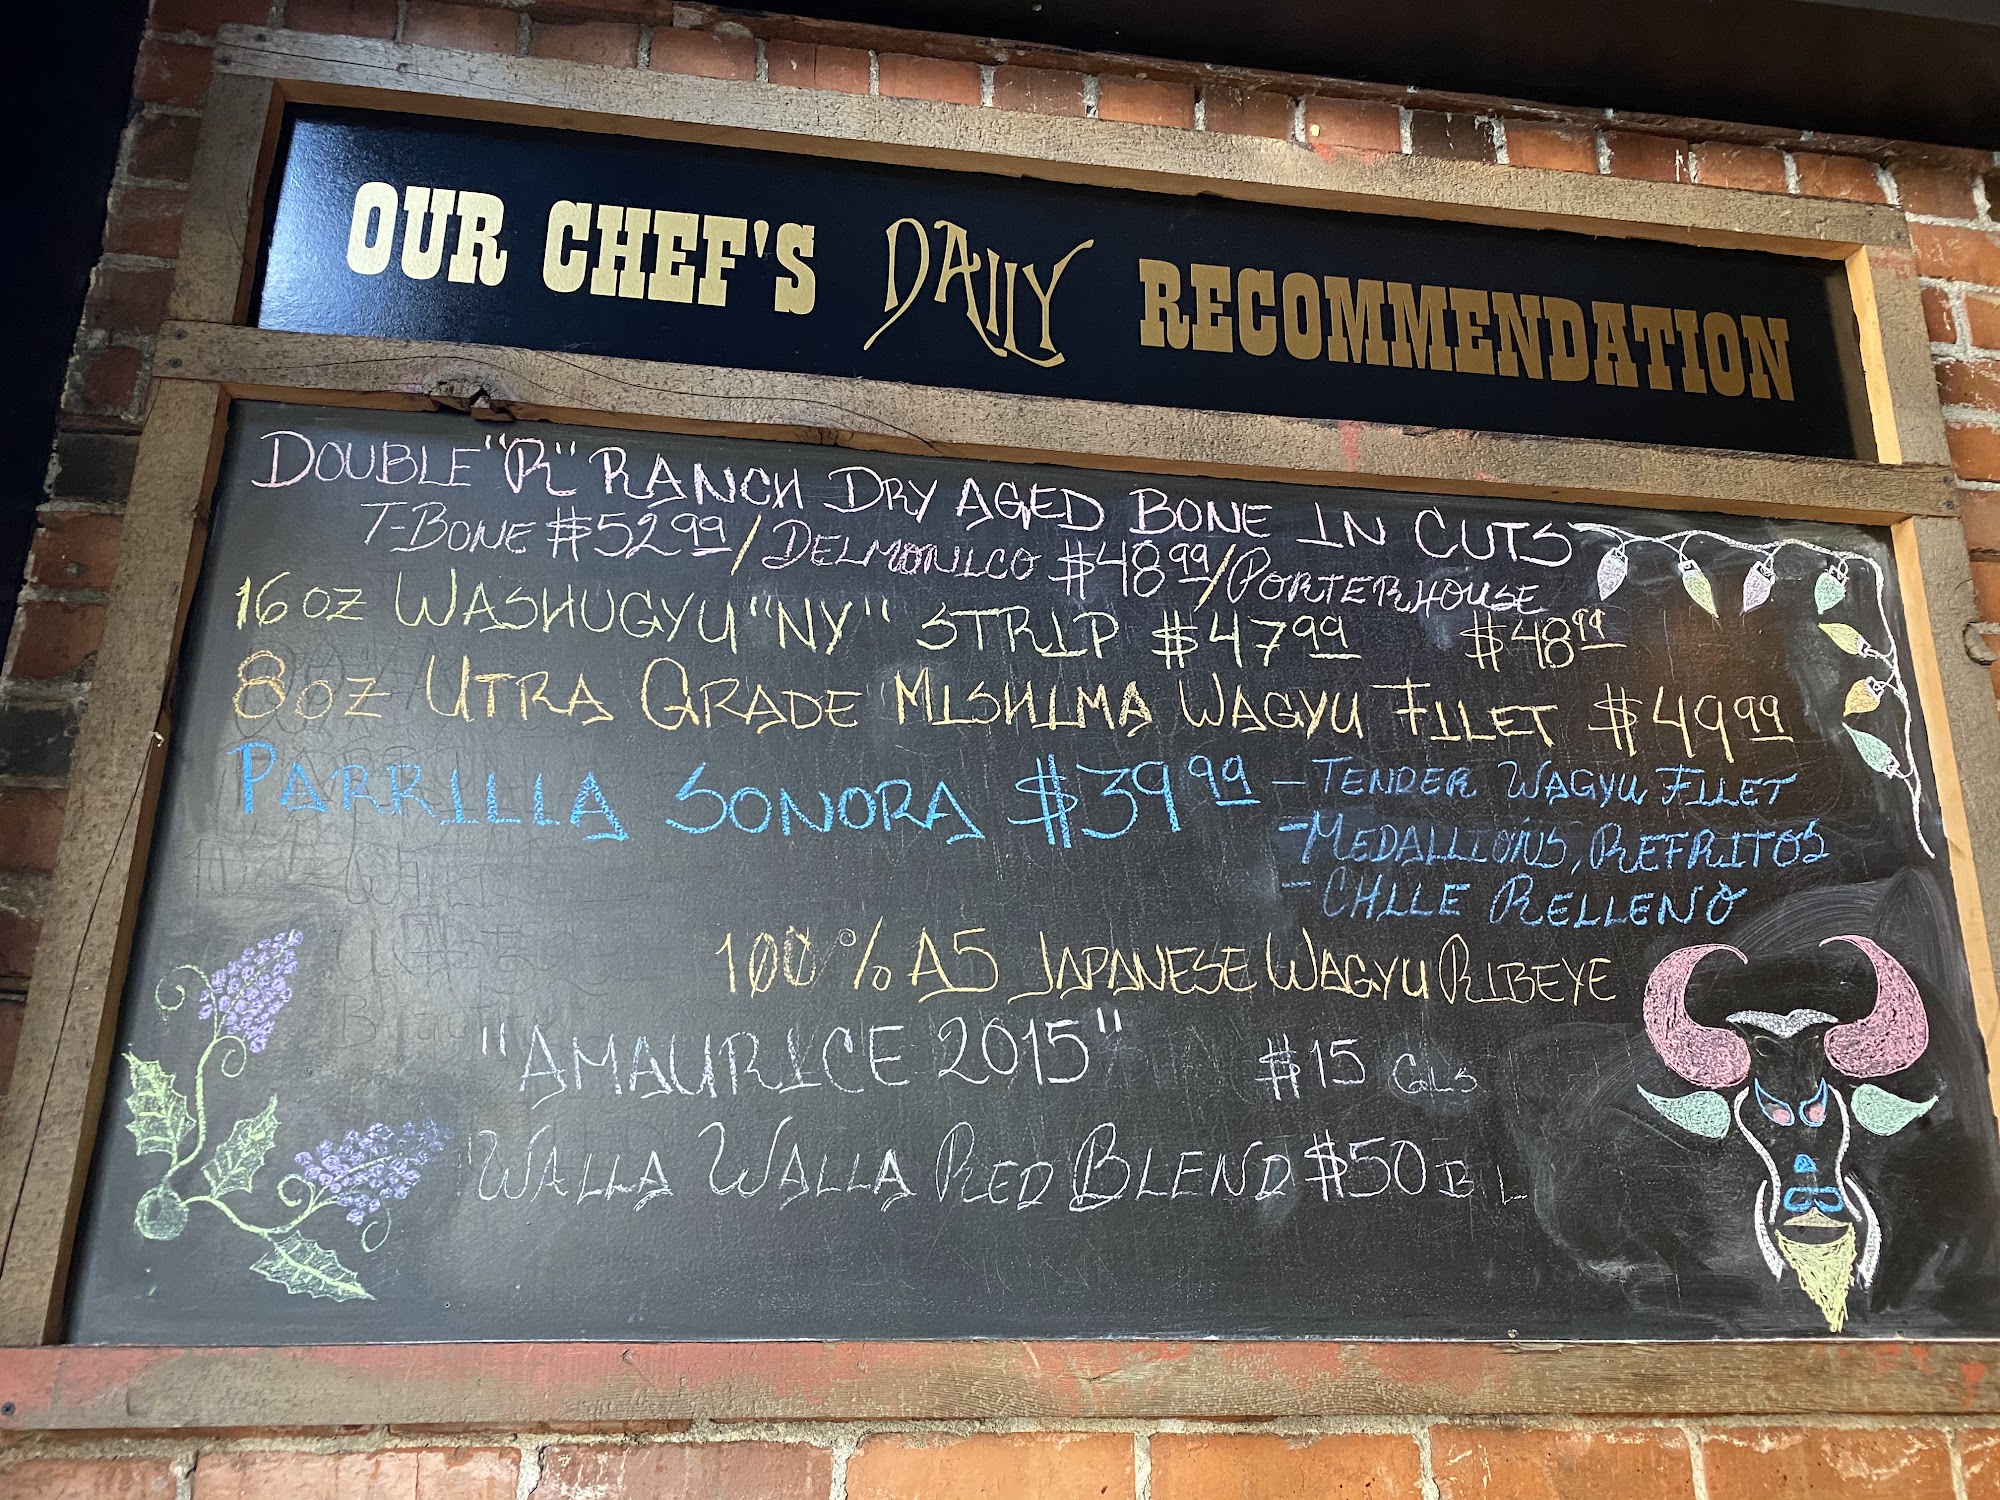 OUR CHEF'S DAILY RECOMMENDATION
DOUBLE "R" RANCH DRY AGED BONE IN CUTS
T-BONE $52.99/DELMONICO $48.99/PORTERHOUSE
$48.99
16 OZ WASHUGYU "NY" STRIP $47.99
8 OZ UTRA GRADE MISHIMA WAGYU FILET $49.99
PARRILLA SONORA $39.99 - TENDER WAGYU FILET
- MEDALLIONS, REFRITOS
- CHILE RELLENO
100% A5 JAPANESE WAGYU RIBEYE
"AMAURICE 2015" $15
WALLA WALLA RED BLEND $50